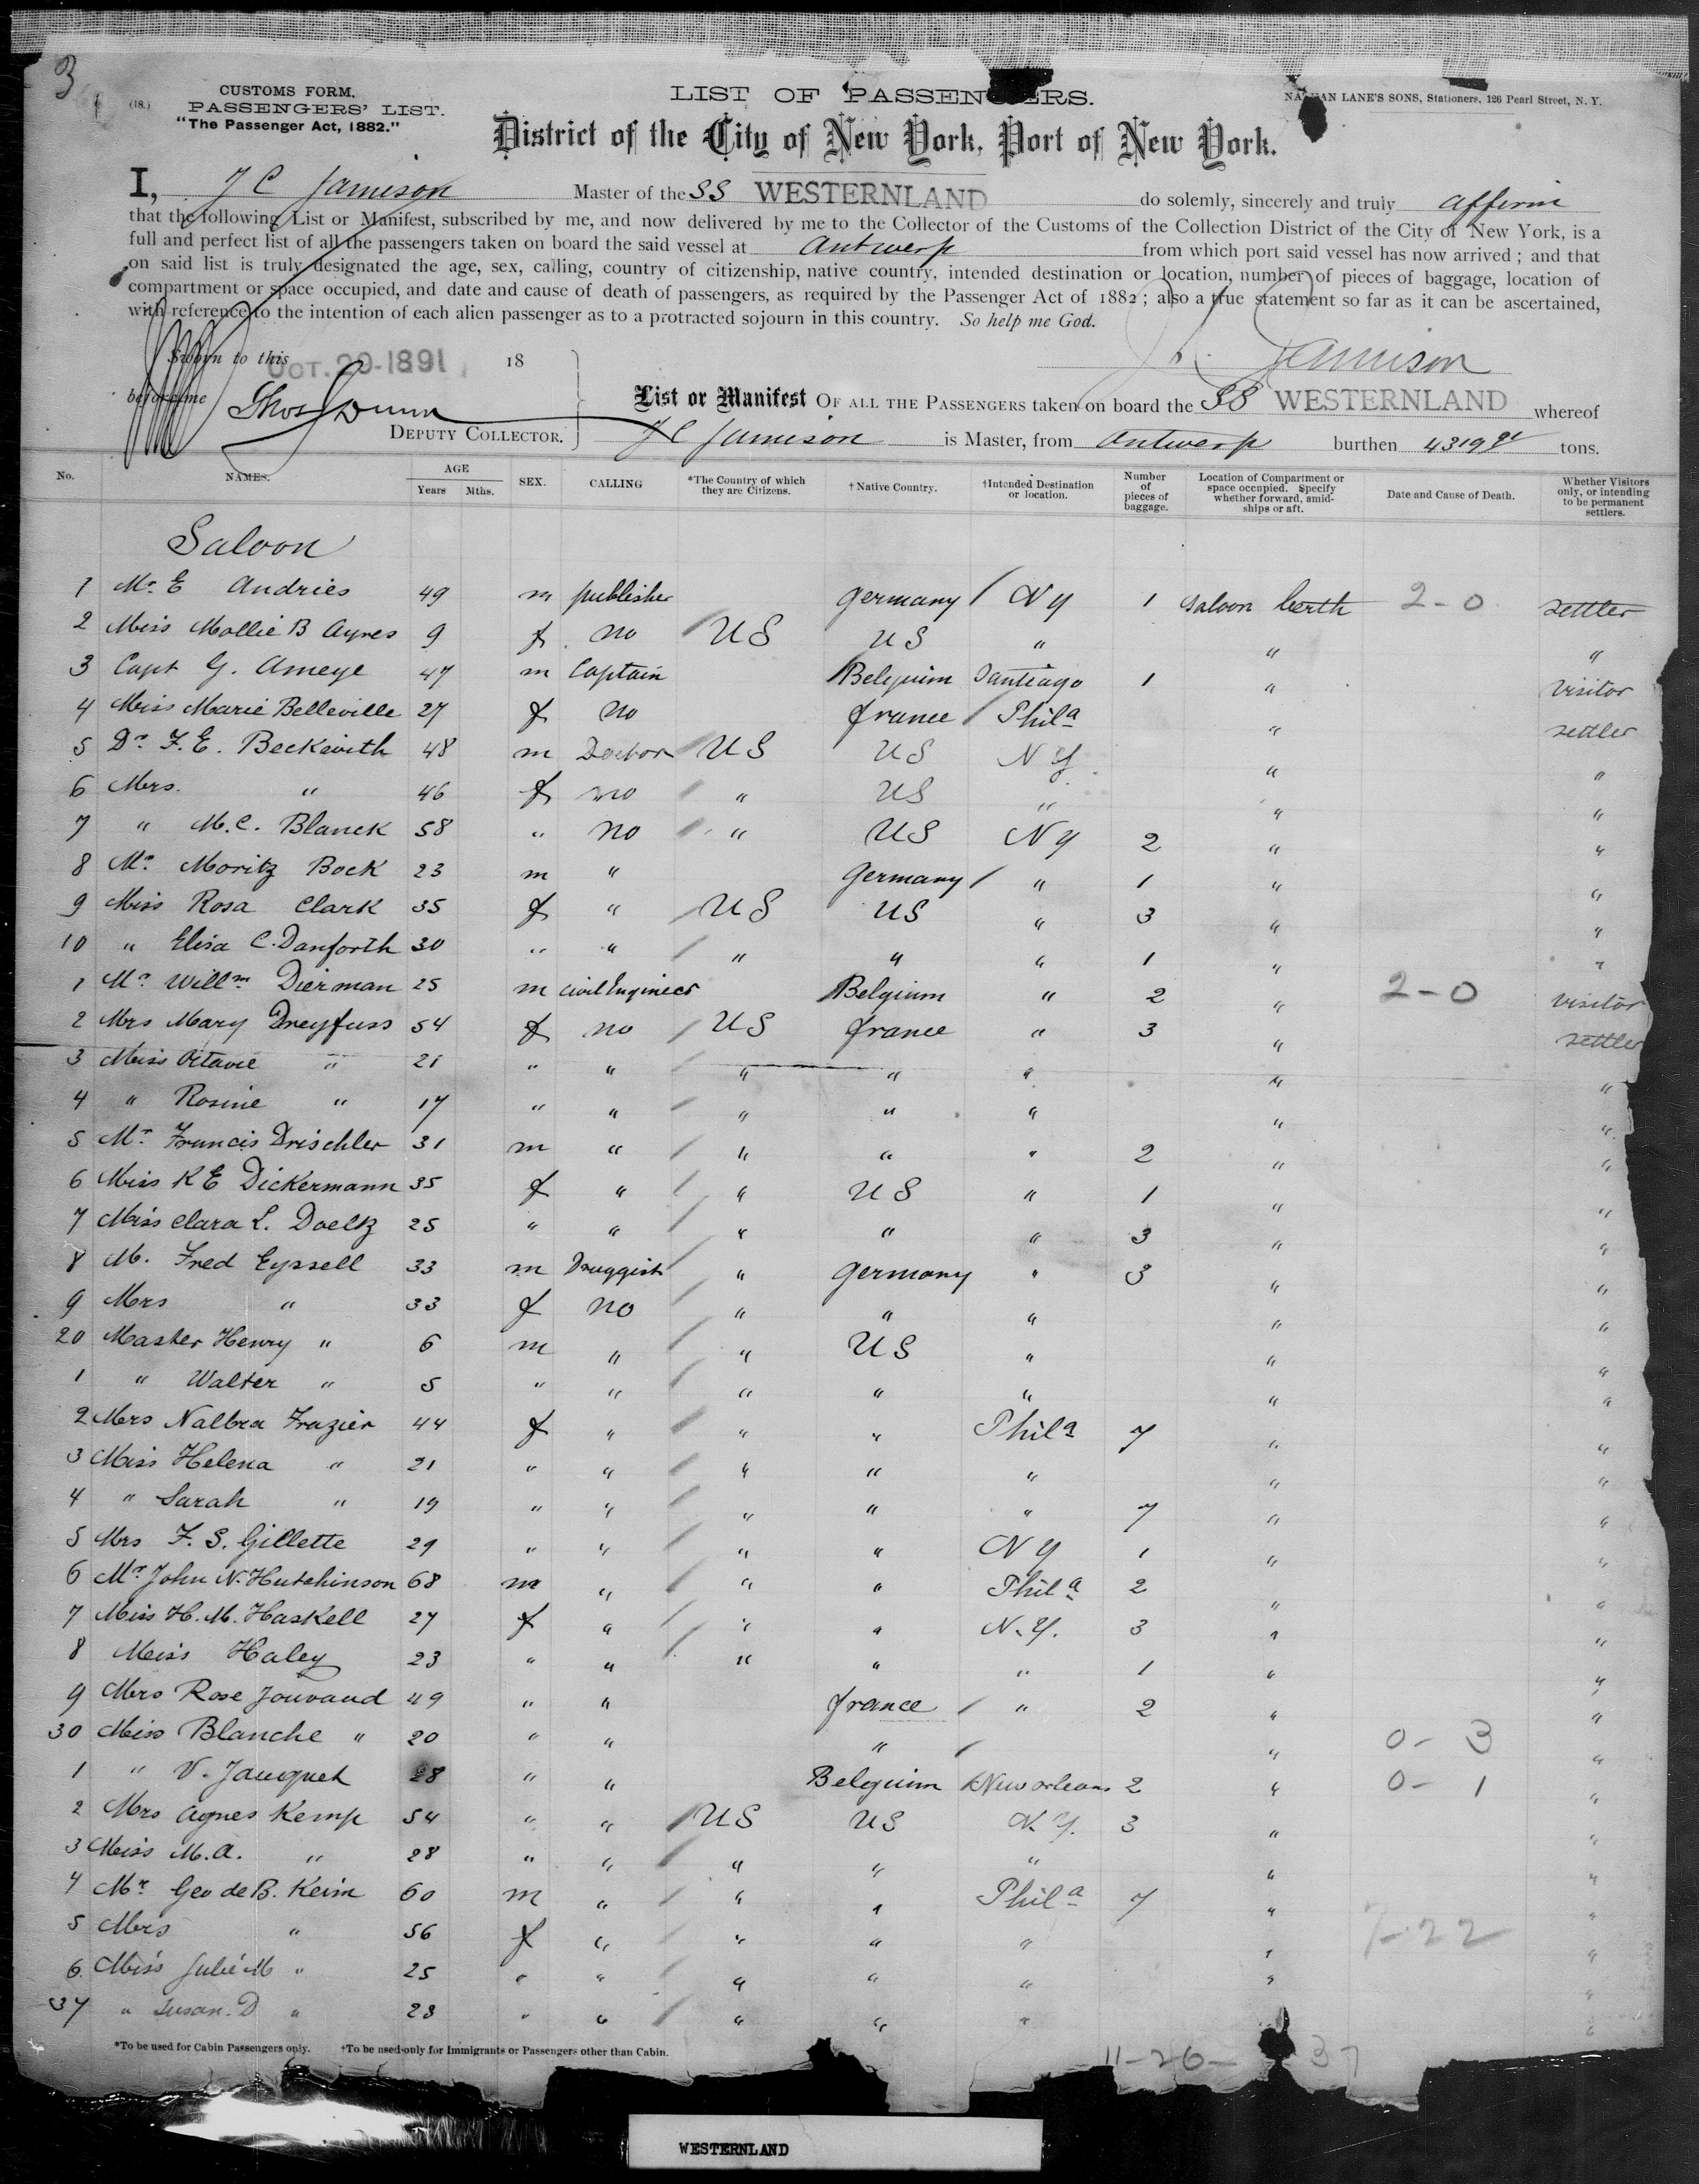 3
CUSTOMS FORM.
(18.) PASSENGERS' LIST.
"The Passenger Act, 1882."
LIST OF PASSENGERS.
NATHAN LANE'S SONS, Stationers, 126 Pearl Street, N. Y.
District of the City of New York, Port of New York.
I, J C Jamison Master of the SS WESTERNLAND do solemly, sincerely and truly affirm
that the following List or Manifest, subscribed by me, and now delivered by me to the Collector of the Customs of the Collection District of the City of New York, is a
full and perfect list of all the passengers taken on board the said vessel at Antwerp from which port said vessel has now arrived ; and that
on said list is truly designated the age, sex, calling, country of citizenship, native country, intended destination or location, number of pieces of baggage, location of
compartment or space occupied, and date and cause of death of passengers, as required by the Passenger Act of 1882 ; also a true statement so far as it can be ascertained,
with reference to the intention of each alien passenger as to a protracted sojourn in this country. So help me God.
Sworn to this OCT. 29-1891 18
Jamison
before me Thos Dunn
DEPUTY COLLECTOR.
List or Manifest OF ALL THE PASSENGERS taken on board the SS WESTERNLAND whereof
J C Jamison is Master, from Antwerp burthen 4319 tons.
No. NAMES. AGE Years Mths. SEX. CALLING *The Country of which they are Citizens. †Native Country. †Intended Destination or location. Number of pieces of baggage. Location of Compartment or space occupied. Specify whether forward, amidships or aft. Date and Cause of Death. Whether Visitors only, or intending to be permanent settlers.
Saloon
1 Mr. E Andries 49 m publisher Germany / N Y 1 Saloon berth 2-0 settler
2 Miss Mollie B Ayres 9 f no / US US " " "
3 Capt G. Ameye 47 m Captain Belguim Santiago 1 " visitor
4 Miss Marie Belleville 27 f no france / Phila " settler
5 Dr. F. E. Beckwith 48 m Doctor / US US N Y " "
6 Mrs. " 46 f no / " US " " "
7 " M. C. Blanck 58 " no / " US N Y 2 " "
8 Mr. Moritz Bock 23 m " Germany / " 1 " "
9 Miss Rosa Clark 35 f " / US US " 3 " "
10 " Elisa C. Danforth 30 " " / " " " 1 " "
1 Mr Willm Dierman 25 m Civil Engineer Belgium " 2 " 2-0 visitor
2 Mrs Mary Dreyfuss 54 f no / US france " 3 " settler
3 Miss Octavie " 21 " " / " " " " "
4 " Rosine " 17 " " / " " " " "
5 Mr. Francis Drischler 31 m " / " " " 2 " "
6 Miss K E Dickermann 35 f " / " US " 1 " "
7 Miss Clara L. Doeltz 25 " " / " " " 3 " "
8 M. Fred Eyssell 33 m Druggist / " Germany " 3 " "
9 Mrs " 33 f no / " " " " "
20 Master Henry " 6 m " / " US " " "
1 " Walter " 5 " " / " " " " "
2 Mrs Nalbra Frazier 44 f " / " " Phila 7 " "
3 Miss Helena " 21 " " / " " " " "
4 " Sarah " 19 " " / " " " 7 " "
5 Mrs F. S. Gillette 29 " " / " " N Y 1 " "
6 Mr. John N. Hutchinson 68 m " / " " Phila 2 " "
7 Miss H. M. Haskell 27 f " / " " N. Y. 3 " "
8 Miss Haley 23 " " / " " " 1 " "
9 Mrs Rose Jouvaud 49 " " france / " 2 " "
30 Miss Blanche " 20 " " " / " 0- 3 "
1 " V. Jacquet 28 " " Belguim / New orleans 2 " 0- 1 "
2 Mrs Agnes Kemp 54 " " / US US N. Y. 3 " "
3 Miss M. A. " 28 " " / " " " " "
4 Mr Geo de B. Keim 60 m " / " " Phila 7 " "
5 Mrs " 56 f " / " " " " 7-22 "
6. Miss Julie M " 25 " " / " " " " "
37 " Susan. D " 23 " " / " " " "
*To be used for Cabin Passengers only. †To be used only for Immigrants or Passengers other than Cabin.
11-26- 37
WESTERNLAND